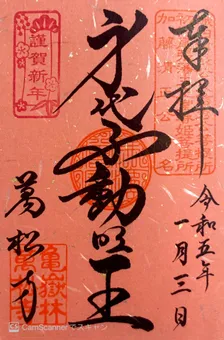 奉拝
令和五年
一月三日
加藤清正公
身代不動明王
謹賀新年
萬松寺
亀嶽林
CS CamScannerでスキャン